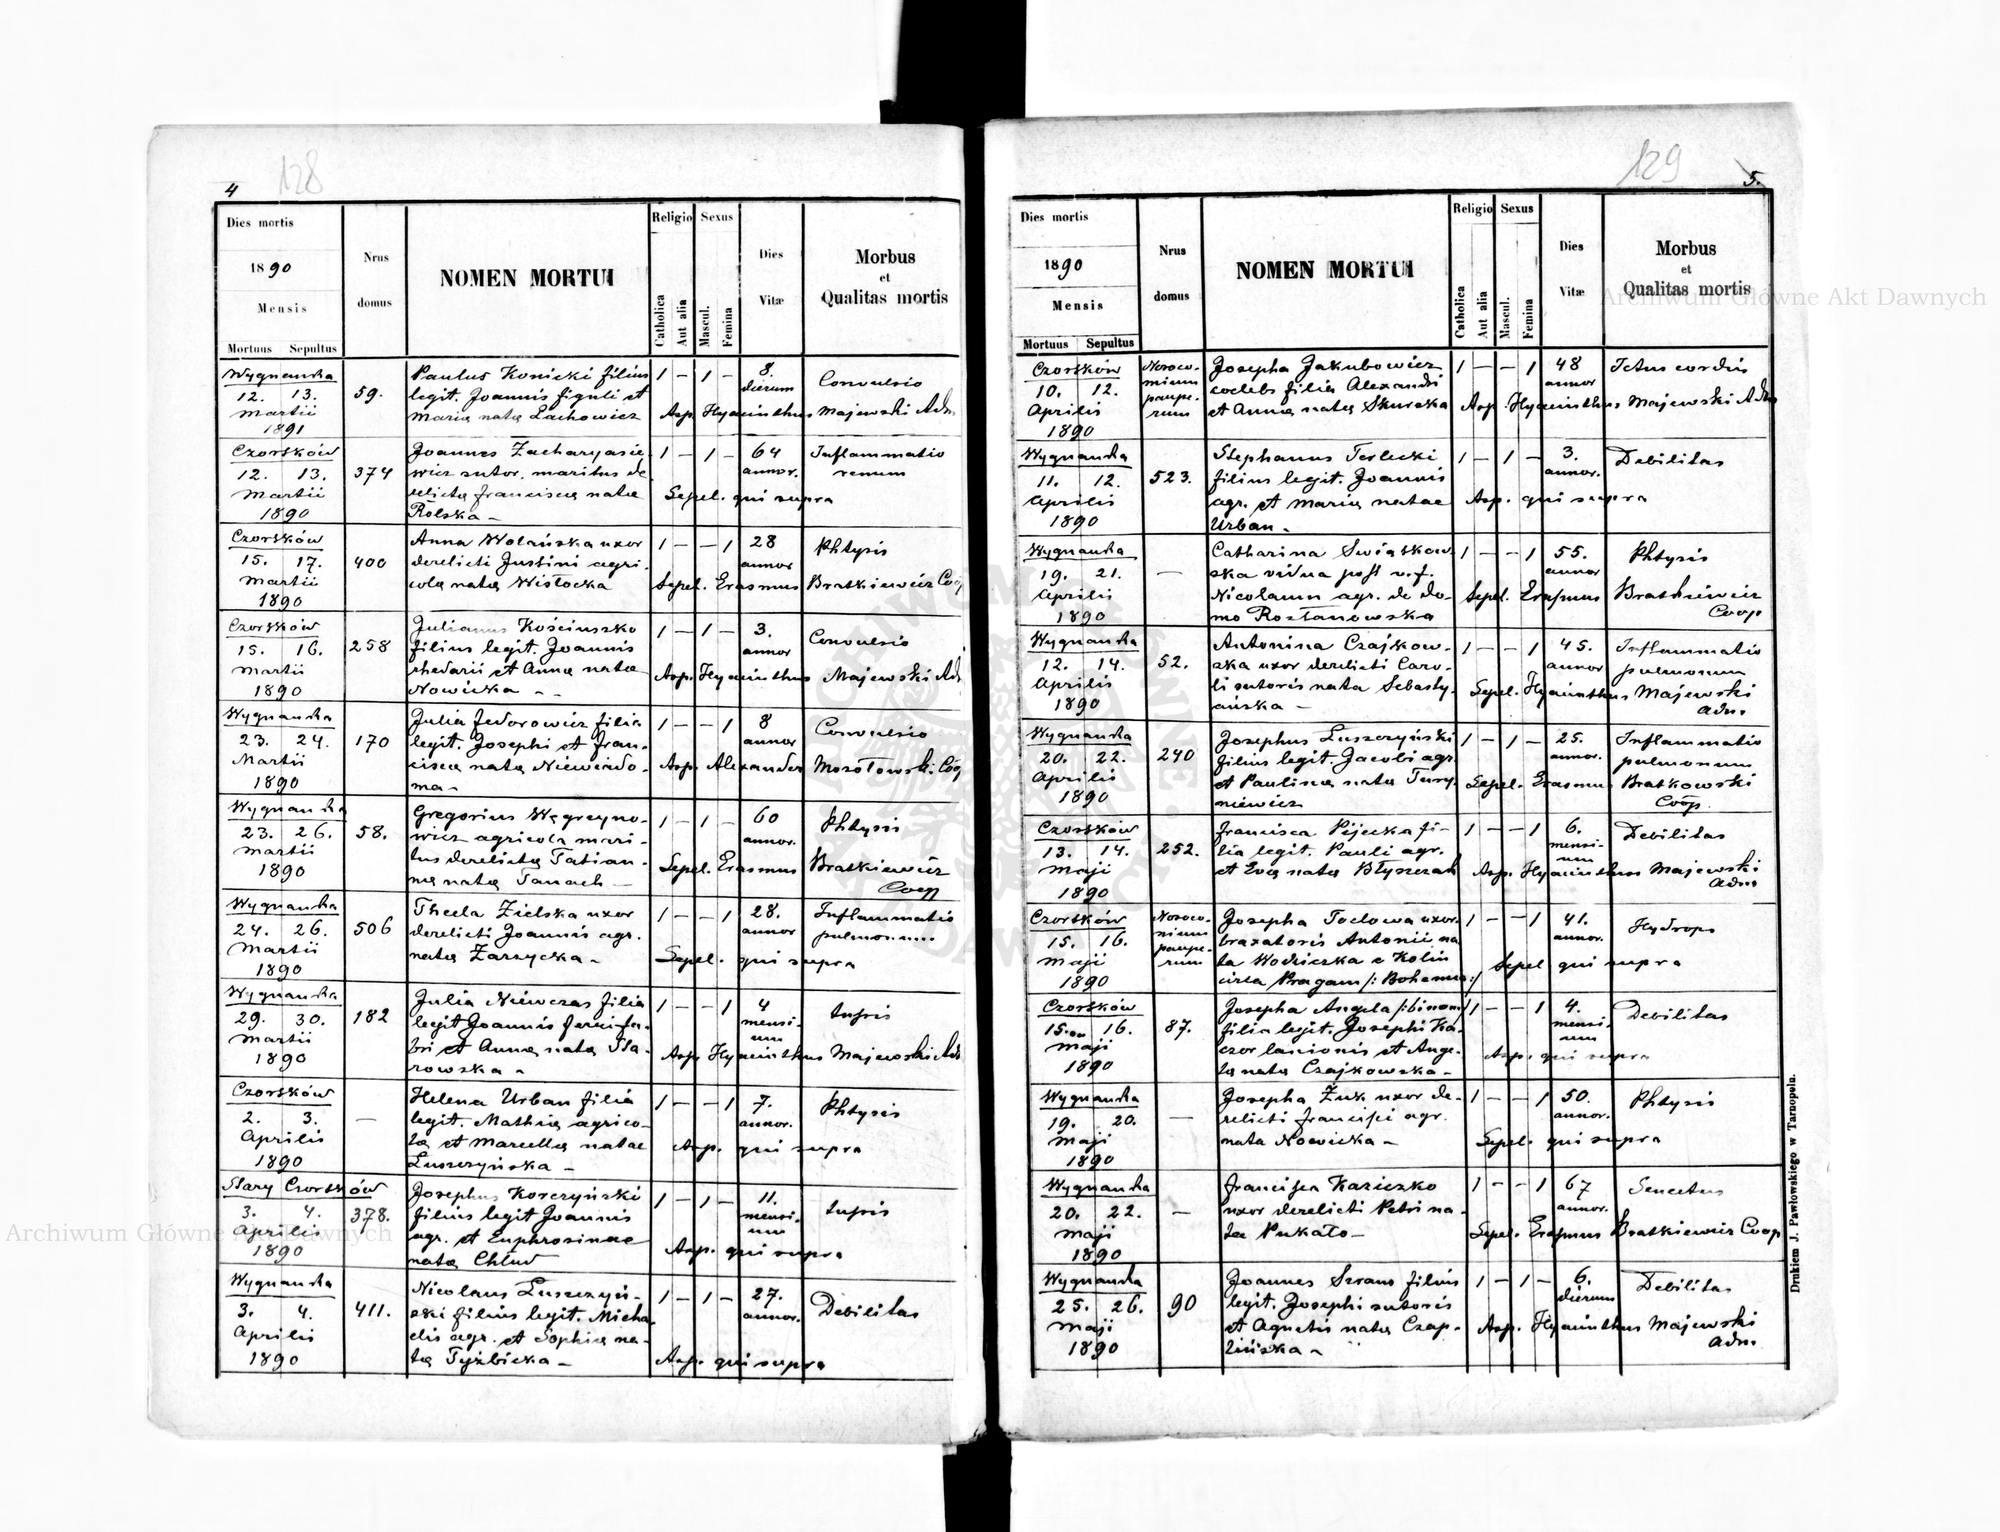 4 128
Dies mortis
1890
Mensis
Mortuus Sepultus
Nrus domus
NOMEN MORTUI
Religio Sexus
Catholica
Aut alia
Mascul.
Femina
Dies Vitæ
Morbus
et
Qualitas mortis
Wygnanka
12. 13.
Martii
1891
59.
Paulus Konicki filius
legit. Joannis figuli et
Maria nata Lachowicz
1 – 1 –
8.
dierum
Convulsio
Asp. Hyacinthus Majewski Adm
Czortków
12. 13.
Martii
1890
374
Joannes Zacharyasie-
wicz sutor. maritus de
relictæ Franciscæ natæ
Rolska –
1 – 1 –
64
annor.
Inflammatio
renum
Sepel. qui supra
Czortków
15. 17.
Martii
1890
400
Anna Wolańska uxor
derelicti Justini agri-
colæ nata Wisłocka
1 – – 1
28
annor
Phtysis
Sepel. Erasmus Bratkiewicz Coop
Czortków
15. 16.
Martii
1890
258
Julianus Kościuszko
filius legit. Joannis
rhedarii et Anna natæ
Nowicka – –
1 – 1 –
3.
annor
Convulsio
Asp. Hyacinthus Majewski Adm
Wygnanka
23. 24.
Martii
1890
170
Julia Fedorowicz filia
legit. Josephi et Fran-
ciscæ nata Niewiado-
ma –
1 – – 1
8
annor
Convulsio
Asp. Alexander Mozołowski Coop
Wygnanka
23. 26.
Martii
1890
58.
Gregorius Węgrzyno-
wicz agricola mari-
tus derelictæ Tatian-
næ nata Tanach –
1 – 1 –
60
annor.
Phtysis
Sepel. Erasmus Bratkiewicz
Coop
Wygnanka
24. 26.
Martii
1890
506
Thecla Zielska uxor
derelicti Joannis agr.
nata Zarzycka –
1 – – 1
28.
annor
Inflammatio
pulmonum
Sepel. qui supra
Wygnanka
29. 30.
Martii
1890
182
Julia Niewczas filia
legit Joannis ferrifa-
bri et Anna nata Sta-
rowska –
1 – – 1
4
mensi-
um
tussis
Asp Hyacinthus Majewski Adm
Czortków
2. 3.
Aprilis
1890
–
Helena Urban filia
legit. Mathiæ agrico-
læ et Marcella natae
Luszczyńska –
1 – – 1
7.
annor.
Phtysis
Asp. qui supra
Stary Czortków
3. 4.
Aprilis
1890
378.
Josephus Korczyński
filius legit Joannis
agr. et Euphrosinae
nata Chlud
1 – 1 –
11.
mensi-
um
tussis
Asp. qui supra
Wygnanka
3. 4.
Aprilis
1890
411.
Nicolaus Luszczyń-
ski filius legit. Micha-
elis agr. et Sophia na-
ta Tyżbicka –
1 – 1 –
27.
annor.
Debilitas
Asp. qui supra
129 5.
Dies mortis
1890
Mensis
Mortuus Sepultus
Nrus domus
NOMEN MORTUI
Religio Sexus
Catholica
Aut alia
Mascul.
Femina
Dies Vitæ
Morbus
et
Qualitas mortis
Czortków
10. 12.
Aprilis
1890
Nosoco-
mium
paupe-
rum
Josepha Jakubowicz
coelebs filia Alexandri
et Anna nata Skurska
1 – – 1
48
annor
Ictus cordis
Asp. Hyacinthus Majewski Adm
Wygnanka
11. 12.
Aprilis
1890
523.
Stephanus Terlecki
filius legit. Joannis
agr. et Maria natae
Urban –
1 – 1 –
3.
annor.
Debilitas
Asp. qui supra
Wygnanka
19. 21.
Aprilis
1890
–
Catharina Swiąskow-
ska vidua post v. f.
Nicolaum agr. de do-
mo Rozłanowska
1 – – 1
55.
annor
Phtysis
Sepel. Erasmus Bratkiewicz
Coop
Wygnanka
12. 14.
Aprilis
1890
52.
Antonina Czajkow-
ska uxor derelicti Caro-
li sutoris nata Sebasty-
ańska –
1 – – 1
45.
annor
Inflammatio
pulmonum
Sepel. Hyacinthus Majewski
Adm.
Wygnanka
20. 22.
Aprilis
1890
240
Josephus Luszczyński
filius legit. Jacobi agr.
et Paulina nata Tury-
niewicz
1 – 1 –
25.
annor.
Inflammatio
pulmonum
Sepel. Erasmus Bratkowski
Coop.
Czortków
13. 14.
Maji
1890
252.
Francisca Pijecka fi-
lia legit. Pauli agr.
et Eva nata Błyszczak
1 – – 1
6.
mensi-
um
Debilitas
Asp. Hyacinthus Majewski
Adm
Czortków
15. 16.
Maji
1890
Nosoco-
mium
paupe-
rum
Josepha Toclowa uxor.
braxatoris Antonii na
ta Wodziczka e Kolin
circa Pragam /: Bohemia :/
1 – – 1
41.
annor.
Hydrops
Sepel qui supra
Czortków
15. 16.
Maji
1890
87.
Josepha Angela /: binom/
filia legit. Josephi Ka-
czor lanionis et Ange-
la nata Czajkowska –
1 – – 1
4.
mensi-
um
Debilitas
Asp. qui supra
Wygnanka
19. 20.
Maji
1890
–
Josepha Żuk uxor de-
relicti Francisci agr.
nata Nowicka –
1 – – 1
50.
annor.
Phtysis
Sepel. qui supra
Wygnanka
20. 22.
Maji
1890
–
Francisca Kaziczko
uxor derelicti Petri na-
ta Pukało –
1 – – 1
67
annor.
Senectus
Sepel. Erasmus Bratkiewicz Coop
Wygnanka
25. 26.
Maji
1890
90
Joannes Szrans filius
legit. Josephi sutoris
et Agnetis nata Czap-
lińska –
1 – 1 –
6.
dierum
Debilitas
Asp. Hyacinthus Majewski
Adm.
Drukiem J. Pawłowskiego w Tarnopolu.
Archiwum Główne Akt Dawnych
Archiwum Główne Akt Dawnych